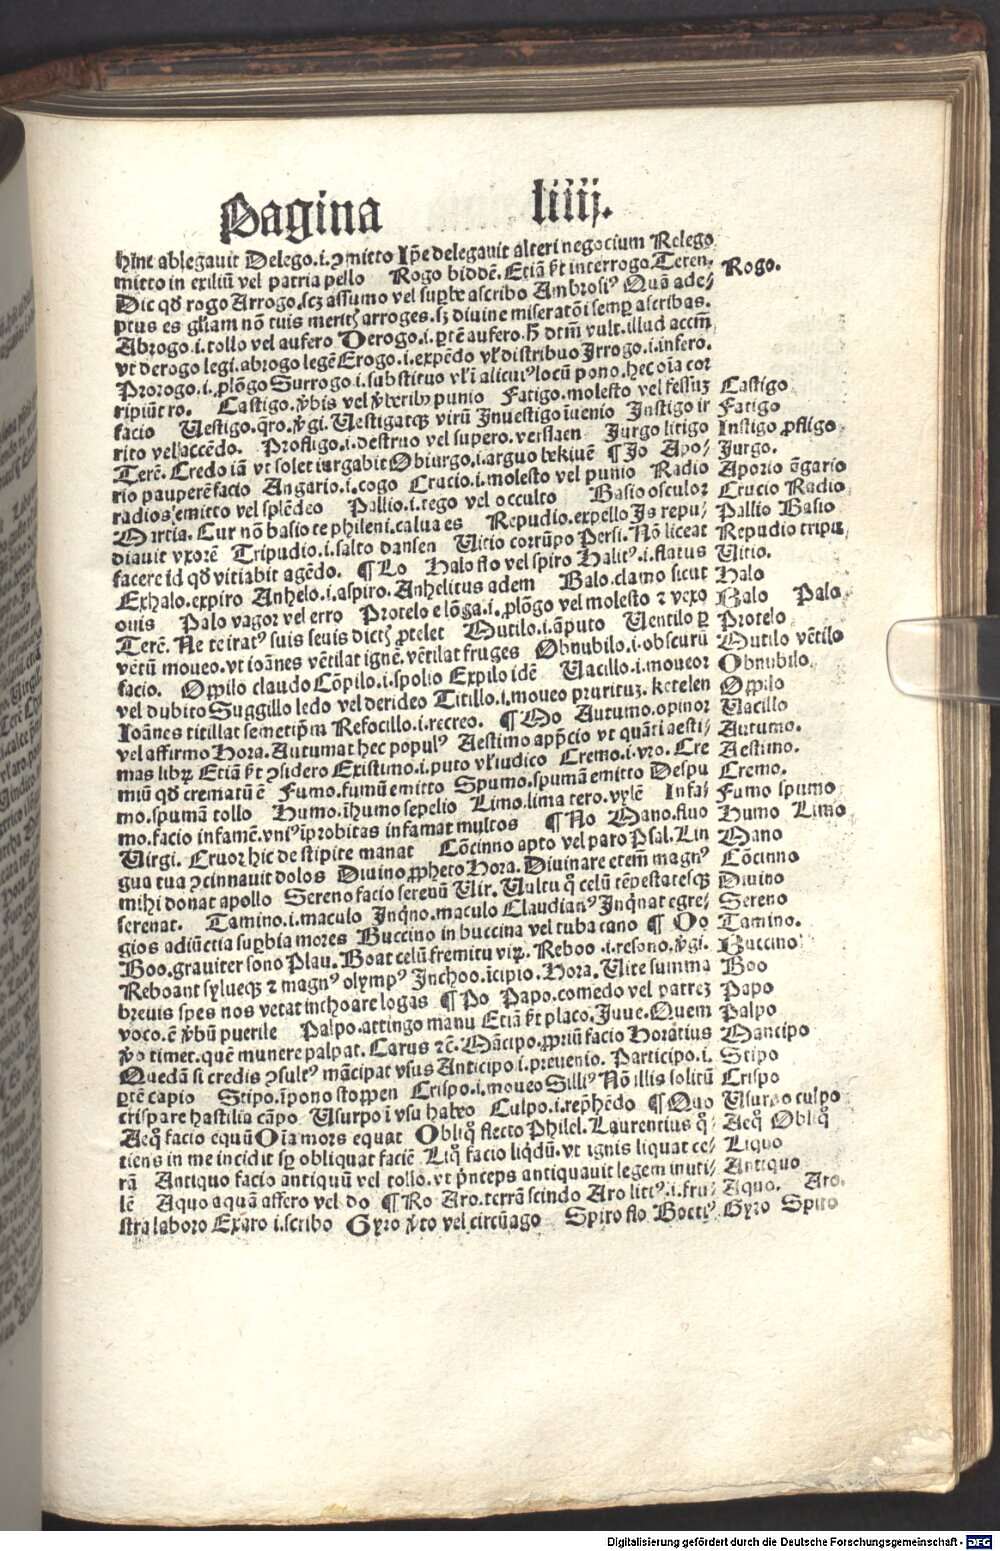 Pagina liiij.
hinc ablegauit Delego.i.ↄmitto Ip̄e delegauit alteri negocium Relego
mitto in exiliū vel patria pello Rogo biddē. Etiā p̄t interrogo. Teren. Rogo.
Dic qđ rogo Arrogo.scꝫ assumo vel suꝑbe ascribo Ambrosiꝰ Quā ade⸗
ptus es gl̄iam nō tuis meritꝭ arroges.sꝫ diuine miseratōi semꝑ ascribas.
Abrogo.i.tollo vel aufero Derogo.i.ꝑtē aufero.
vt derogo legi.abrogo legē Erogo.i.expēdo vl̓ distribuo Irrogo.i.infero.
Prorogo.i.ꝓlōgo Surrogo.i.substituo vl̓ i alicuiꝰ locū pono.hec oīa cor
ripiūt ro. Castigo.v̓bis vel v̓beribꝰ punio Fatigo.molesto vel fessuꝫ Castigo
facio Uestigo.q̄ro.v̓gi.Uestigatqꝫ virū Inuestigo īuenio Instigo ir Fatigo
rito vel accēdo. Profligo.i.destruo vel supero.verslaen Iurgo litigo Instigo ꝓfligo
Terē. Credo iā vt solet iurgabit Obiurgo.i.arguo bekiuē ¶ Io Apo⸗ Iurgo.
rio pauperē facio Angario.i.cogo Crucio.i.molesto vel punio Radio Aporio āgario
radios emitto vel splēdeo Pallio.i.tego vel occulto Basio osculor Crucio Radio
Mircia. Cur nō basio te phileni.calua es Repudio.expello Is repu⸗ Pallio Basio
diauit vxorē Tripudio.i.salto dansen Uitio corrūpo Persi. Nō liceat Repudio tripu,
facere id qđ vitiabit agēdo. ¶ Lo Halo flo vel spiro Halitꝰ.i.flatus Uitio.
Exhalo.expiro Anhelo.i.aspiro. Anhelitus adem Balo.clamo sicut Halo
ouis Palo vagor vel erro Protelo e lōga.i.ꝓlōgo vel molesto ⁊ vexo Balo Palo.
Terē. Ne te iratꝰ suis seuis dictꝭ ꝓtelet Mutilo.i.āputo Uentilo ꝑ Protelo
vētū moueo.vt ioānes vētilat ignē.vētilat fruges Obnubilo.i.obscurū Mutilo vētilo
facio. Oppilo claudo Cōpilo.i.spolio Expilo idē Uacillo.i.moueor Obnubilo.
vel dubito Suggillo ledo vel derideo Titillo.i.moueo prurituꝫ.ketelen Oppilo
Ioānes titillat semetip̄m Refocillo.i.recreo. ¶ Mo Autumo.opinor Uacillo
vel affirmo Hora. Autumat hec populꝰ Aestimo app̄cio vt quāti aesti⸗ Autumo.
mas librꝫ Etiā p̄t ↄsidero Existimo.i.puto vl̓ iudico Cremo.i.vro. Cre Aestimo.
miū qđ crematū ē Fumo.fumū emitto Spumo.spumā emitto Despu Cremo.
mo.spumā tollo Humo.īhumo sepelio Limo.lima tero.vylē Infa⸗ Fumo spumo
mo.facio infamē.vniꝰ īprobitas infamat multos ¶ No Mano.fluo Humo Limo
Uirgi. Cruor hic de stipite manat Cōcinno apto vel paro Psal. Lin Mano
gua tua ↄcinnauit dolos Diuino ꝓpheto Hora. Diuinare etem magnꝰ Cōcinno
mihi donat apollo Sereno facio serenū Uir. Uultu q̊ celū tēpestatesqꝫ Diuino
serenat. Tamino.i.maculo Inq̓no.maculo Claudianꝰ Inq̓nat egre⸗ Sereno
gios adiūcta suꝑbia mores Buccino in buccina vel tuba cano ¶ Oo Tamino.
Boo.grauiter sono Plau. Boat celū fremitu viꝝ. Reboo.i.resono.v̓gi. Buccino
Reboant sylueqꝫ ⁊ magnꝰ olympꝰ Inchoo.īcipio.Hora. Uite summa Boo
breuis spes nos vetat inchoare lōgas ¶ Po Papo.comedo vel patreꝫ Papo
voco.ē v̓bū puerile Palpo.attingo manu Etiā p̄t placo. Iuue. Quem Palpo
v̓o timet.quē munere palpat. Carus ⁊c̄. Mācipo.ꝓpriū facio Horatius Mancipo
Quedā si credis ↄsultꝰ mācipat vsus Anticipo i.preuenio. Participo.i. Stipo
ꝑtē capio Stipo.īpono stoppen Crispo.i.moueo Silliꝰ Nō illis solitū Crispo
crispare hastilia cāpo Usurpo ī vsu habeo Culpo.i.rep̄hēdo ¶ Quo Usurpo culpo
Aeq̊ facio equū Oīa mors equat Obliq̊ flecto Philel. Laurentius q̊⸗ Aeq̊ Obliq̊
tiens in me incidit sꝑ obliquat faciē Liq̊ facio liq̓dū.vt ignis liquat ce⸗ Liquo
rā Antiquo facio antiquū vel tollo.vt p̓nceps antiquauit legem inuti⸗ Antiquo
lē Aquo aquā affero vel do ¶ Ro Aro.terrā scindo Aro litꝰ.i.fru⸗ Aquo. Aro.
stra laboro Exaro i.scribo Gyro v̓to vel circūago Spiro flo Boetiꝰ Gyro Spiro
Digitalisierung gefördert durch die Deutsche Forschungsgemeinschaft - DFG